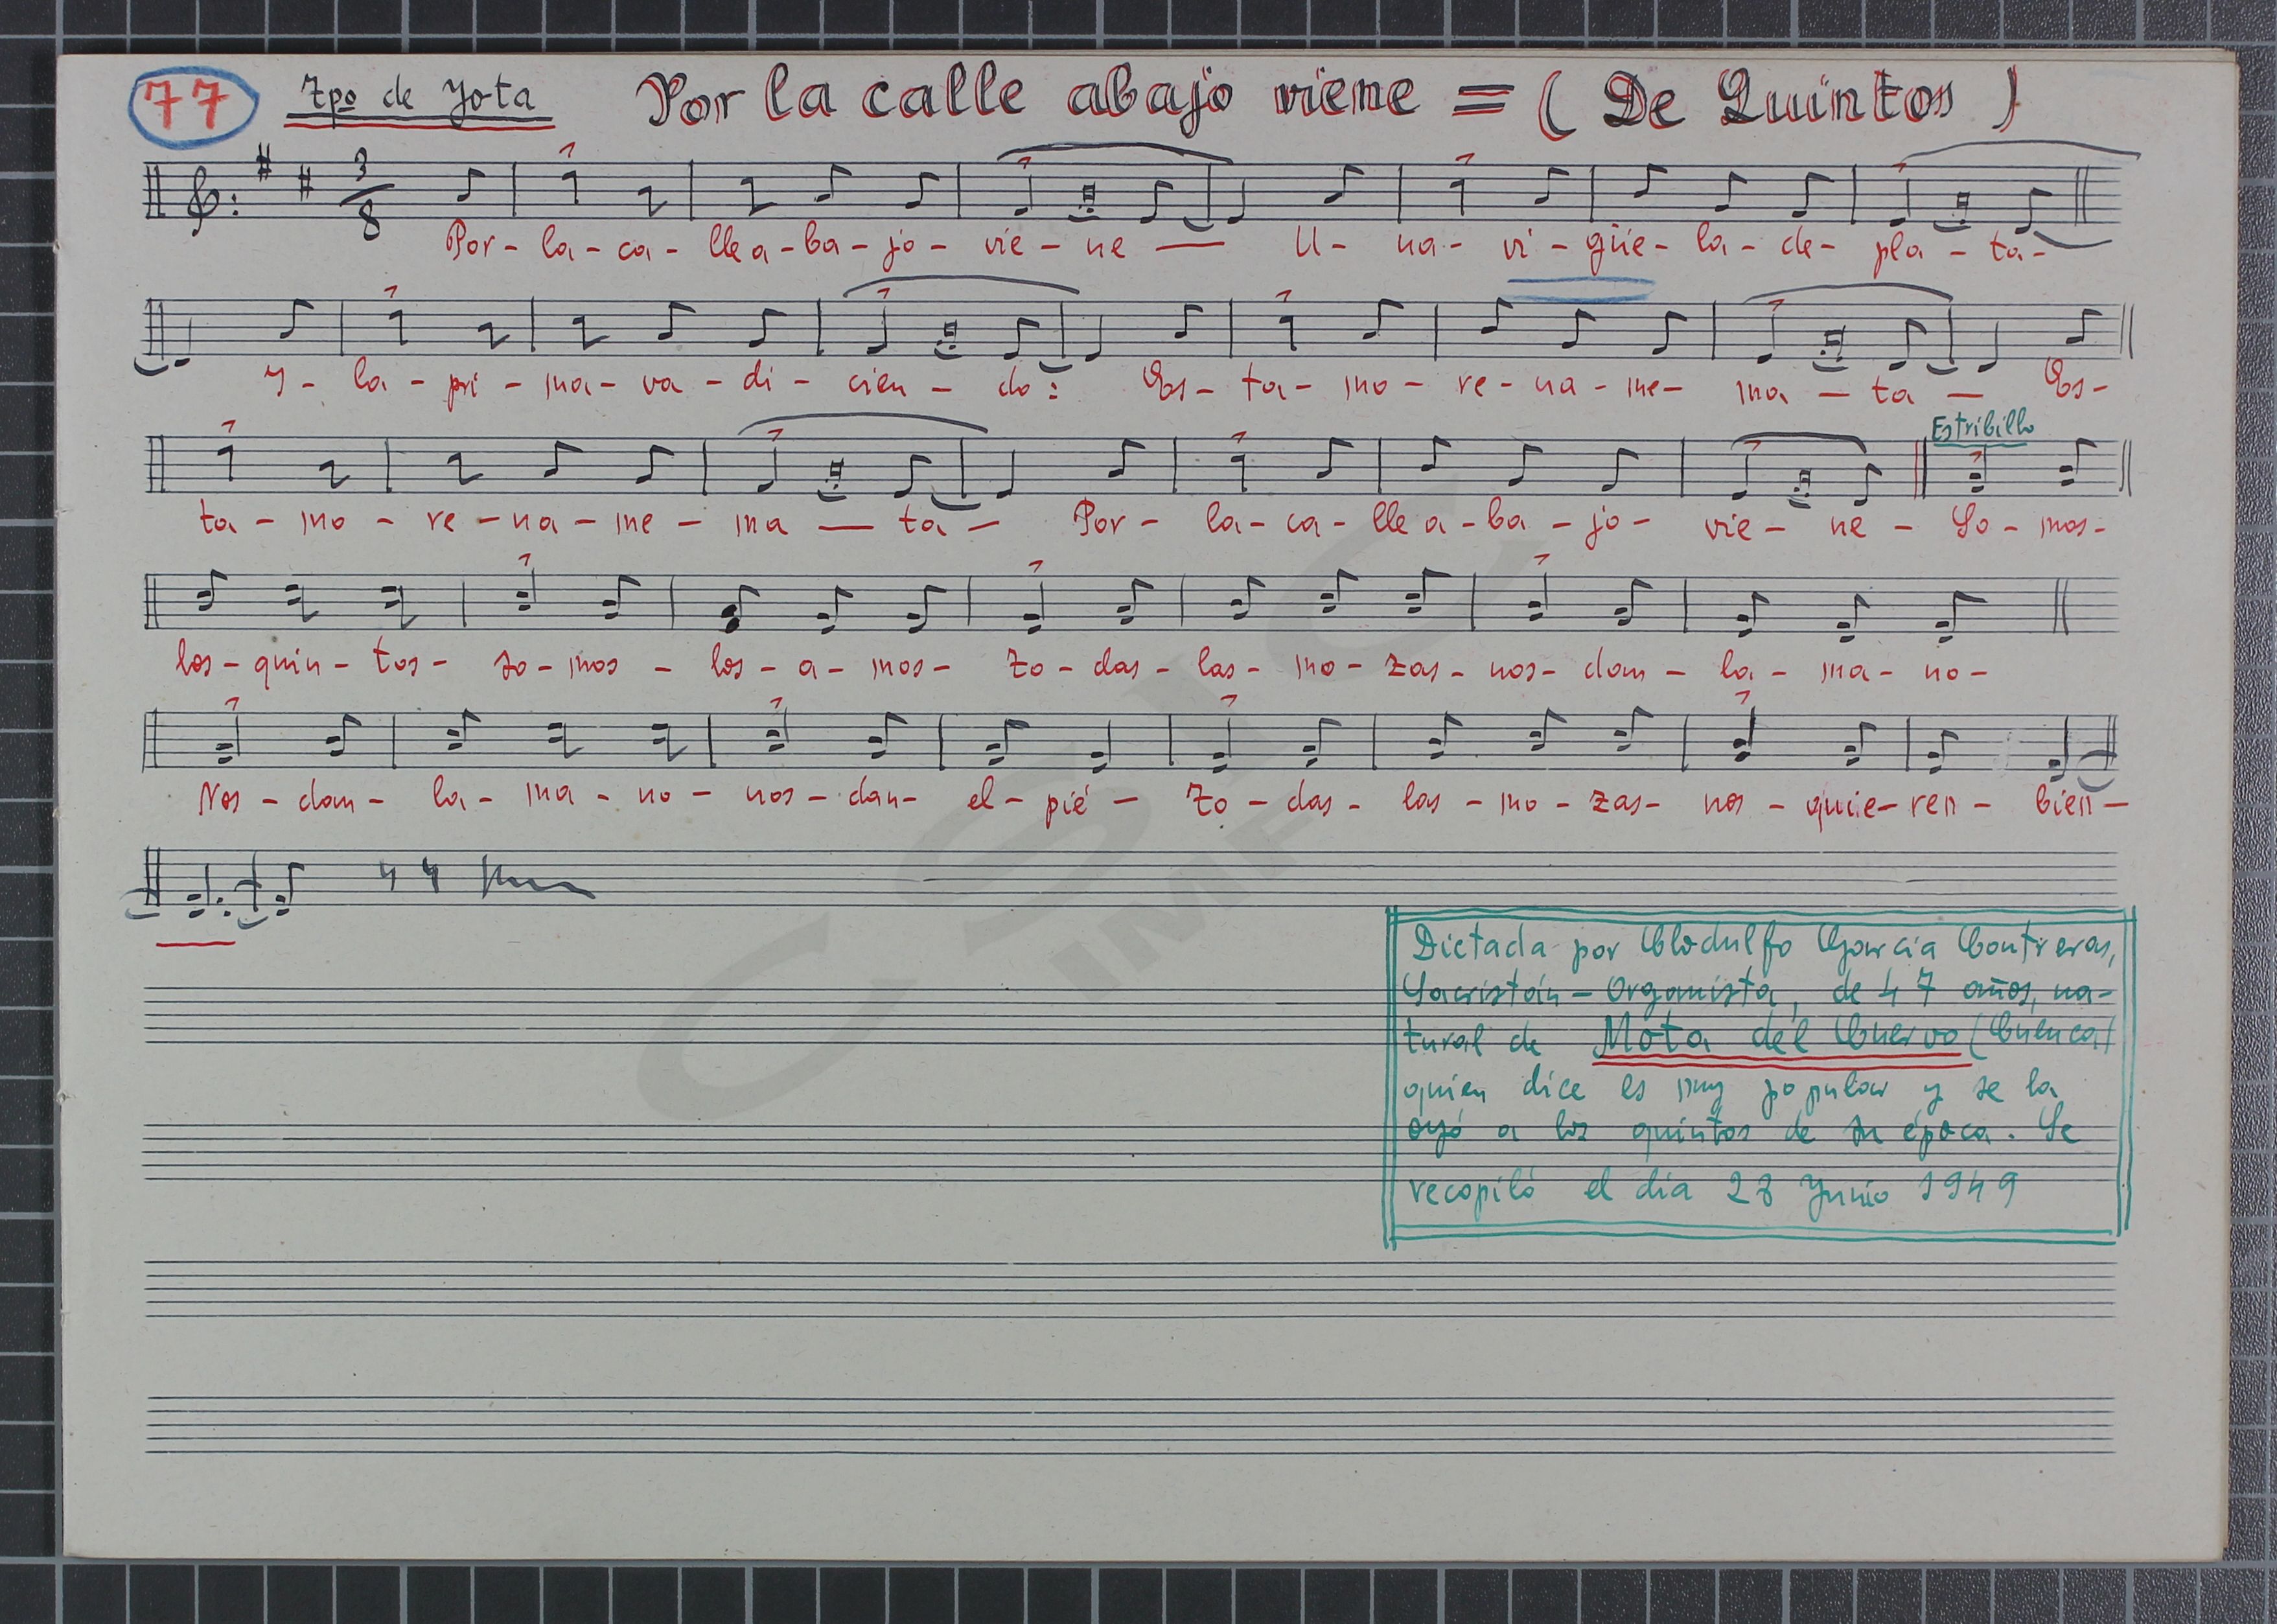 77 Tpo de Jota Por la calle abajo viene = (De Quintos)
3
8
Por - la - ca - lle a - ba - jo - vie - ne — U - na - vi - güe - la - de - pla - ta -
Y - la - pri - ma - va - di - cien - do: Es - ta - mo - re - na - me - ma - ta — Es -
Estribillo
ta - mo - re - na - me - ma — ta — Por - la - ca - lle a - ba - jo - vie - ne - So - mos -
los - quin - tos - so - mos - los - a - mos - To - das - las - mo - zas - nos - dan - la - ma - no -
Nos - dan - la - ma - no - nos - dan - el - pié - To - das - las - mo - zas - nos - quie - ren - bien -
Dictada por Clodulfo García Contreras,
Sacristán - Organista, de 47 años, na-
tural de Mota del Cuervo (Cuenca)
quien dice es muy popular y se la
oyó a los quintos de su época. Se
recopiló el dia 28 Junio 1949
CSIC
IMF